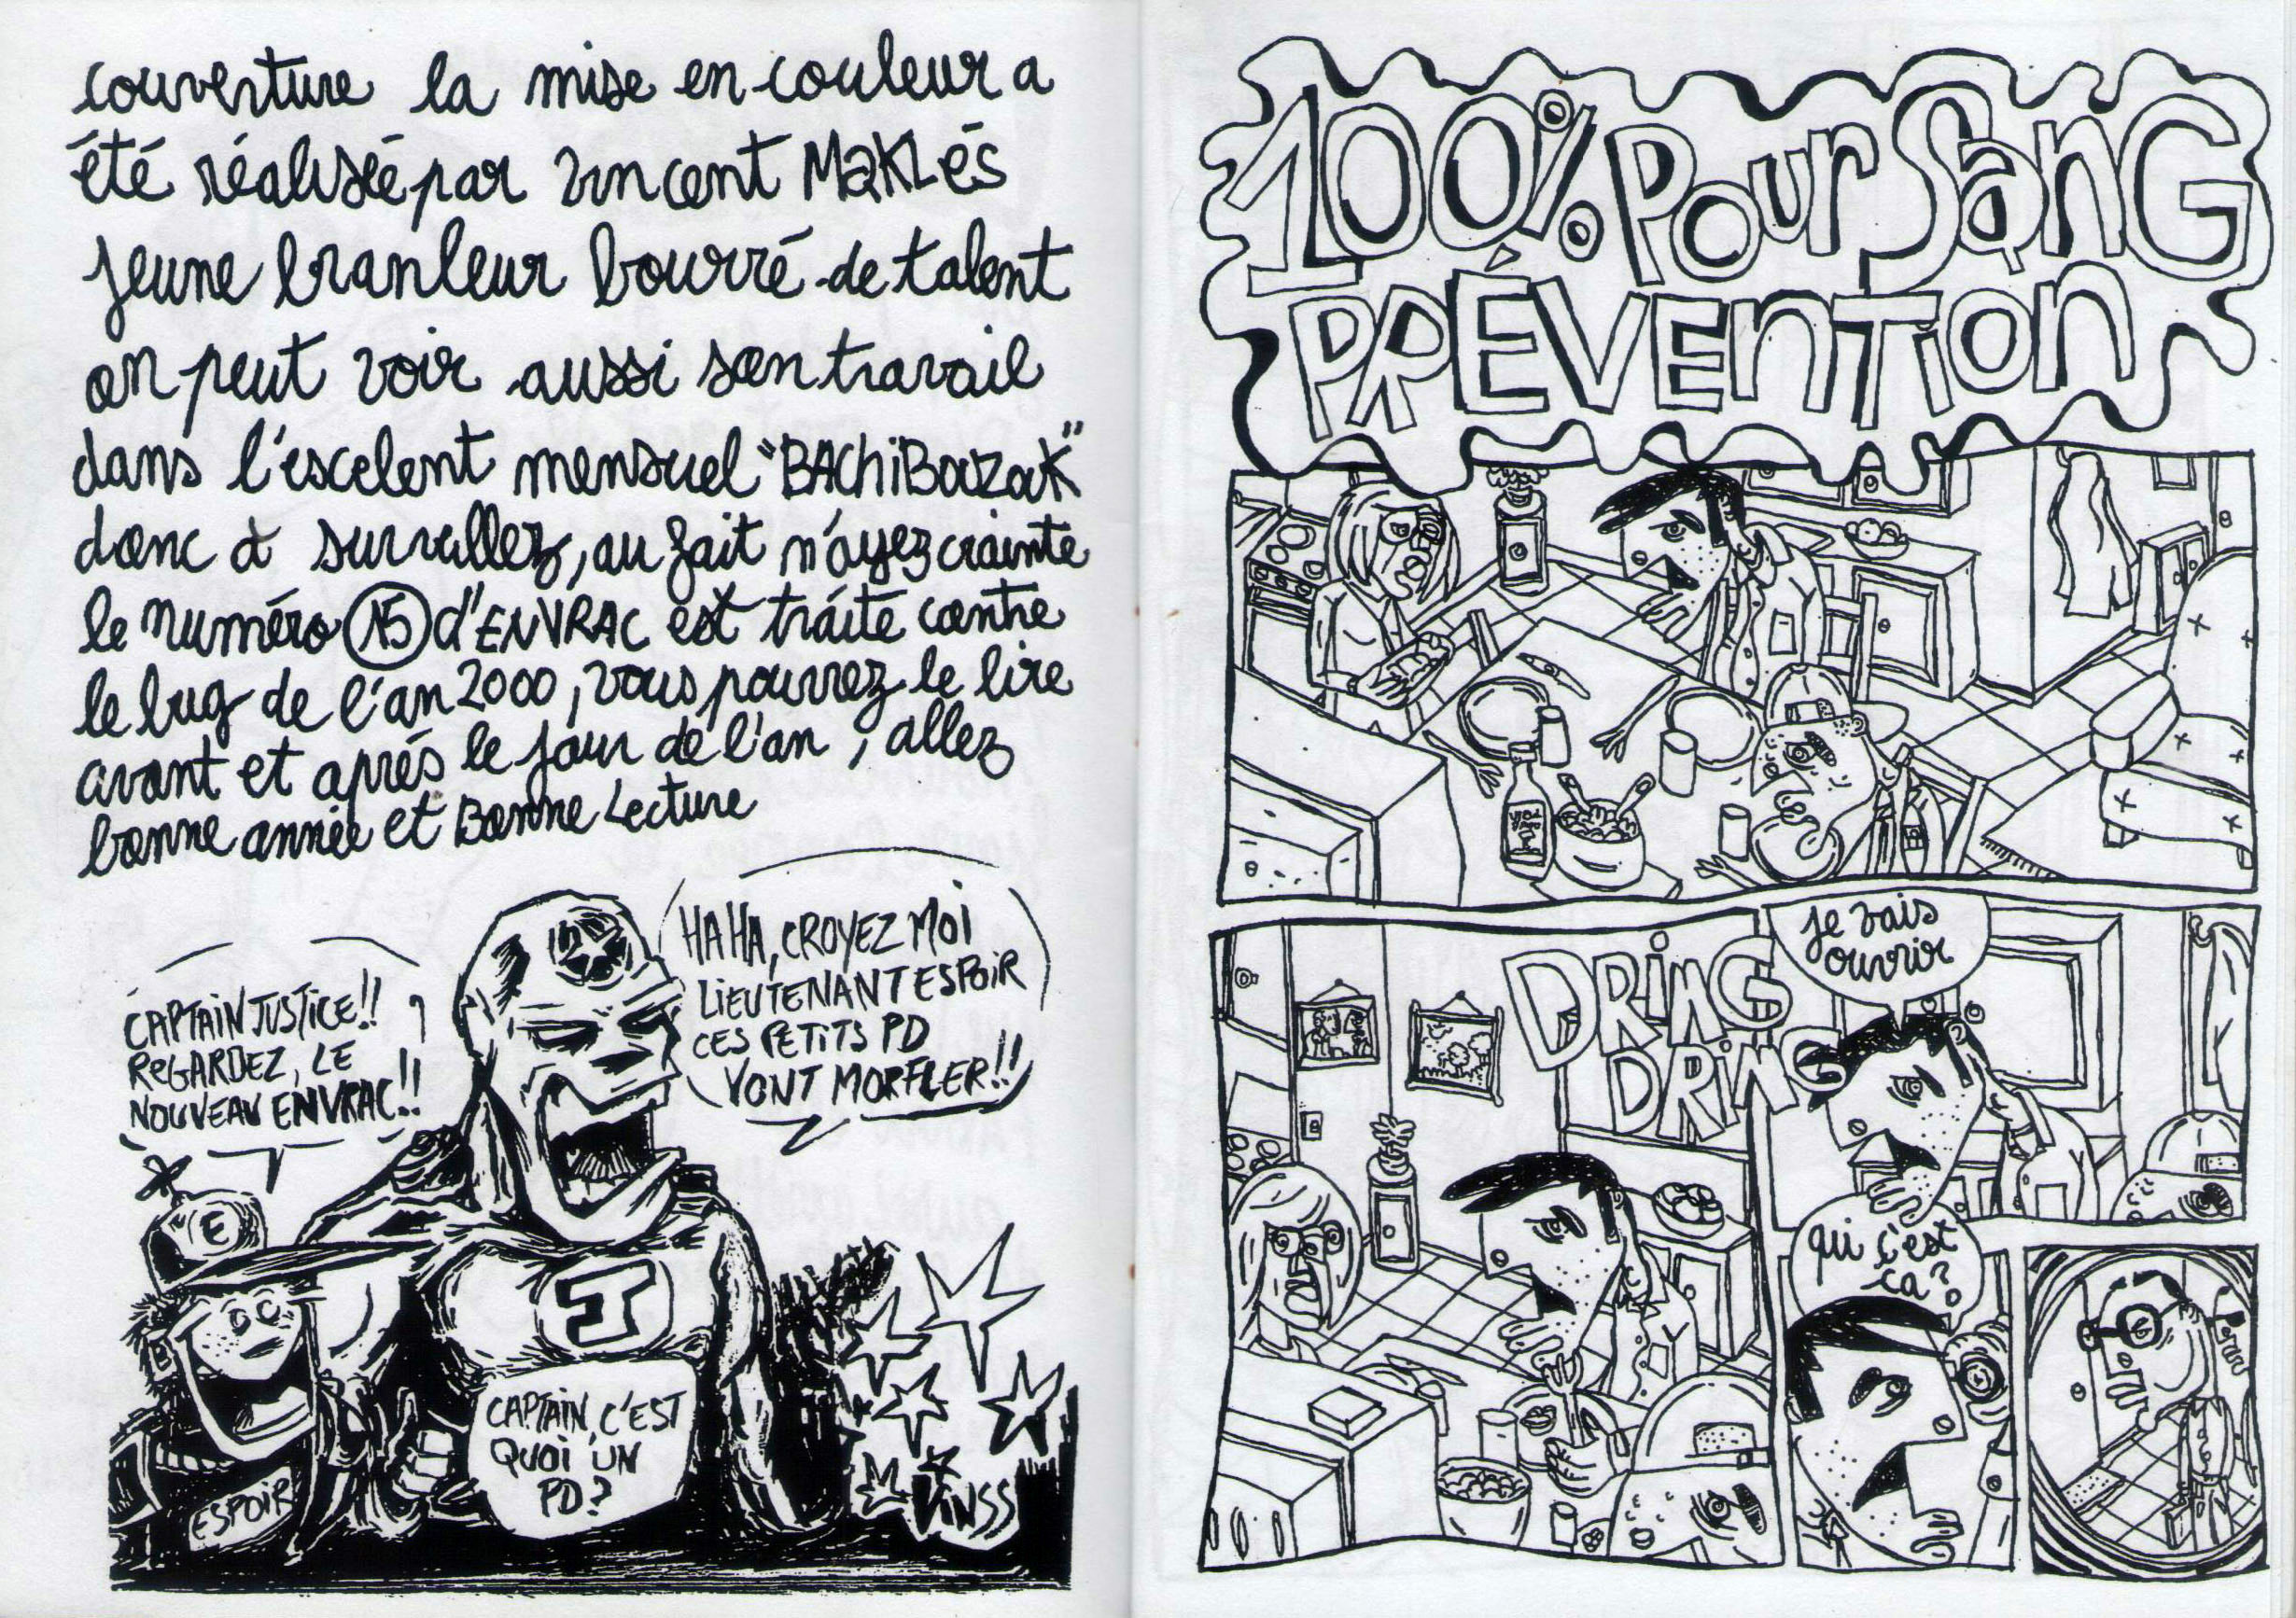 couverture la mise en couleur a
été réalisée par vincent MaKLés
jeune branleur bourré de talent
on peut voir aussi son travail
dans l'escelent mensuel "BAChiBouzouK"
donc à survellez, au fait n'ayez crainte
le numéro 15 d'ENVRAC est traite contre
le bug de l'an 2000, vous pourrez le lire
avant et aprés le jour de l'an, allez
bonne année et Bonne Lecture
CAPTAIN JUSTICE!!
REGARDEZ, LE
NOUVEAU ENVRAC!!
HA HA, CROYEZ MOI
LIEUTENANT ESPOIR
CES PETITS PD
VONT MORFLER!!
E
J
CAPTAIN, C'EST
QUOI UN
PD?
ESPOIR
VINSS
100% Pour SanG
PRÉVENTION
je vais
ouvrir
DRING
DRING
qui c'est
ça?